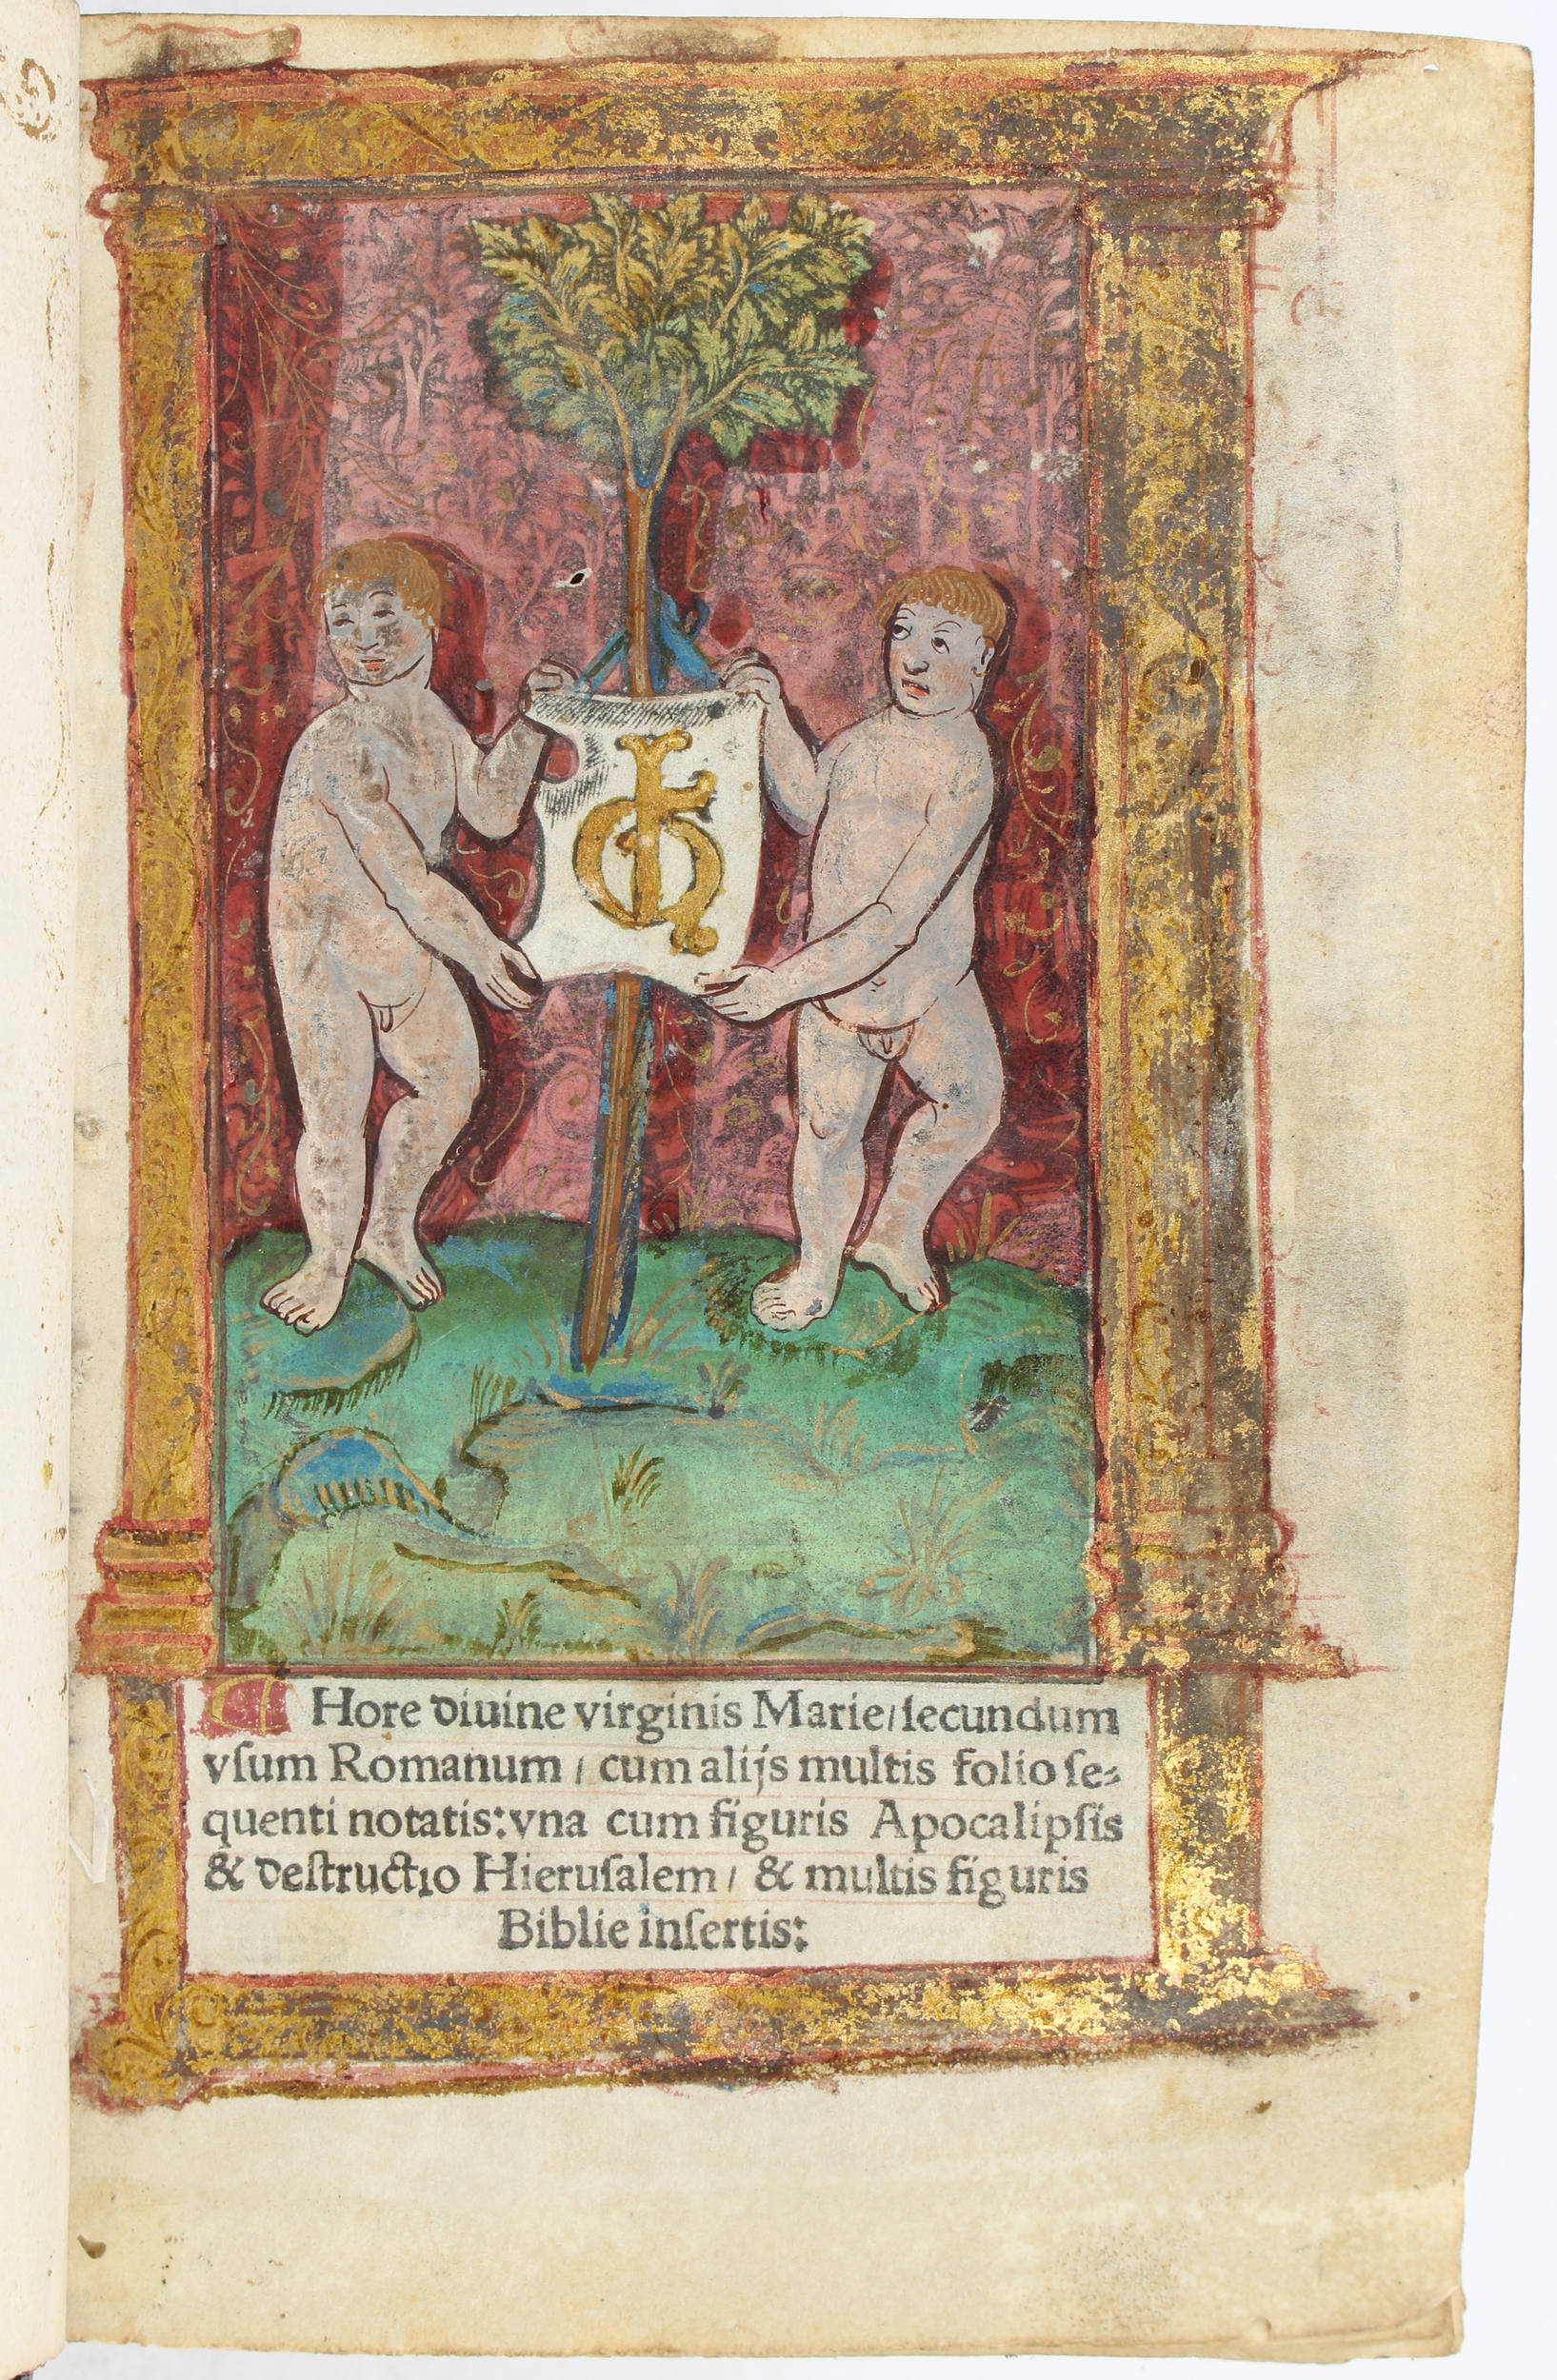 Hore diuine virginis Marie/ secundum
vſum Romanum / cum alijs multis folio ſe⸗
quenti notatis: vna cum figuris Apocalipſis
& deſtructio Hieruſalem / & multis figuris
Biblie inſertis: